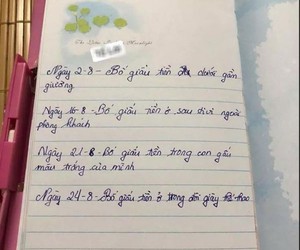 Ngày 2-8- Bố giấu tiền dưới gần
giường
Ngày 16-8-Bố giấu tiền ở sau tivi ngoài
phòng khách
Ngày 21-8-Bố giấu tiền trong con gấu
màu trắng của mình
Ngày 24-8-Bố giấu tiền ở trong đôi giày thể thao